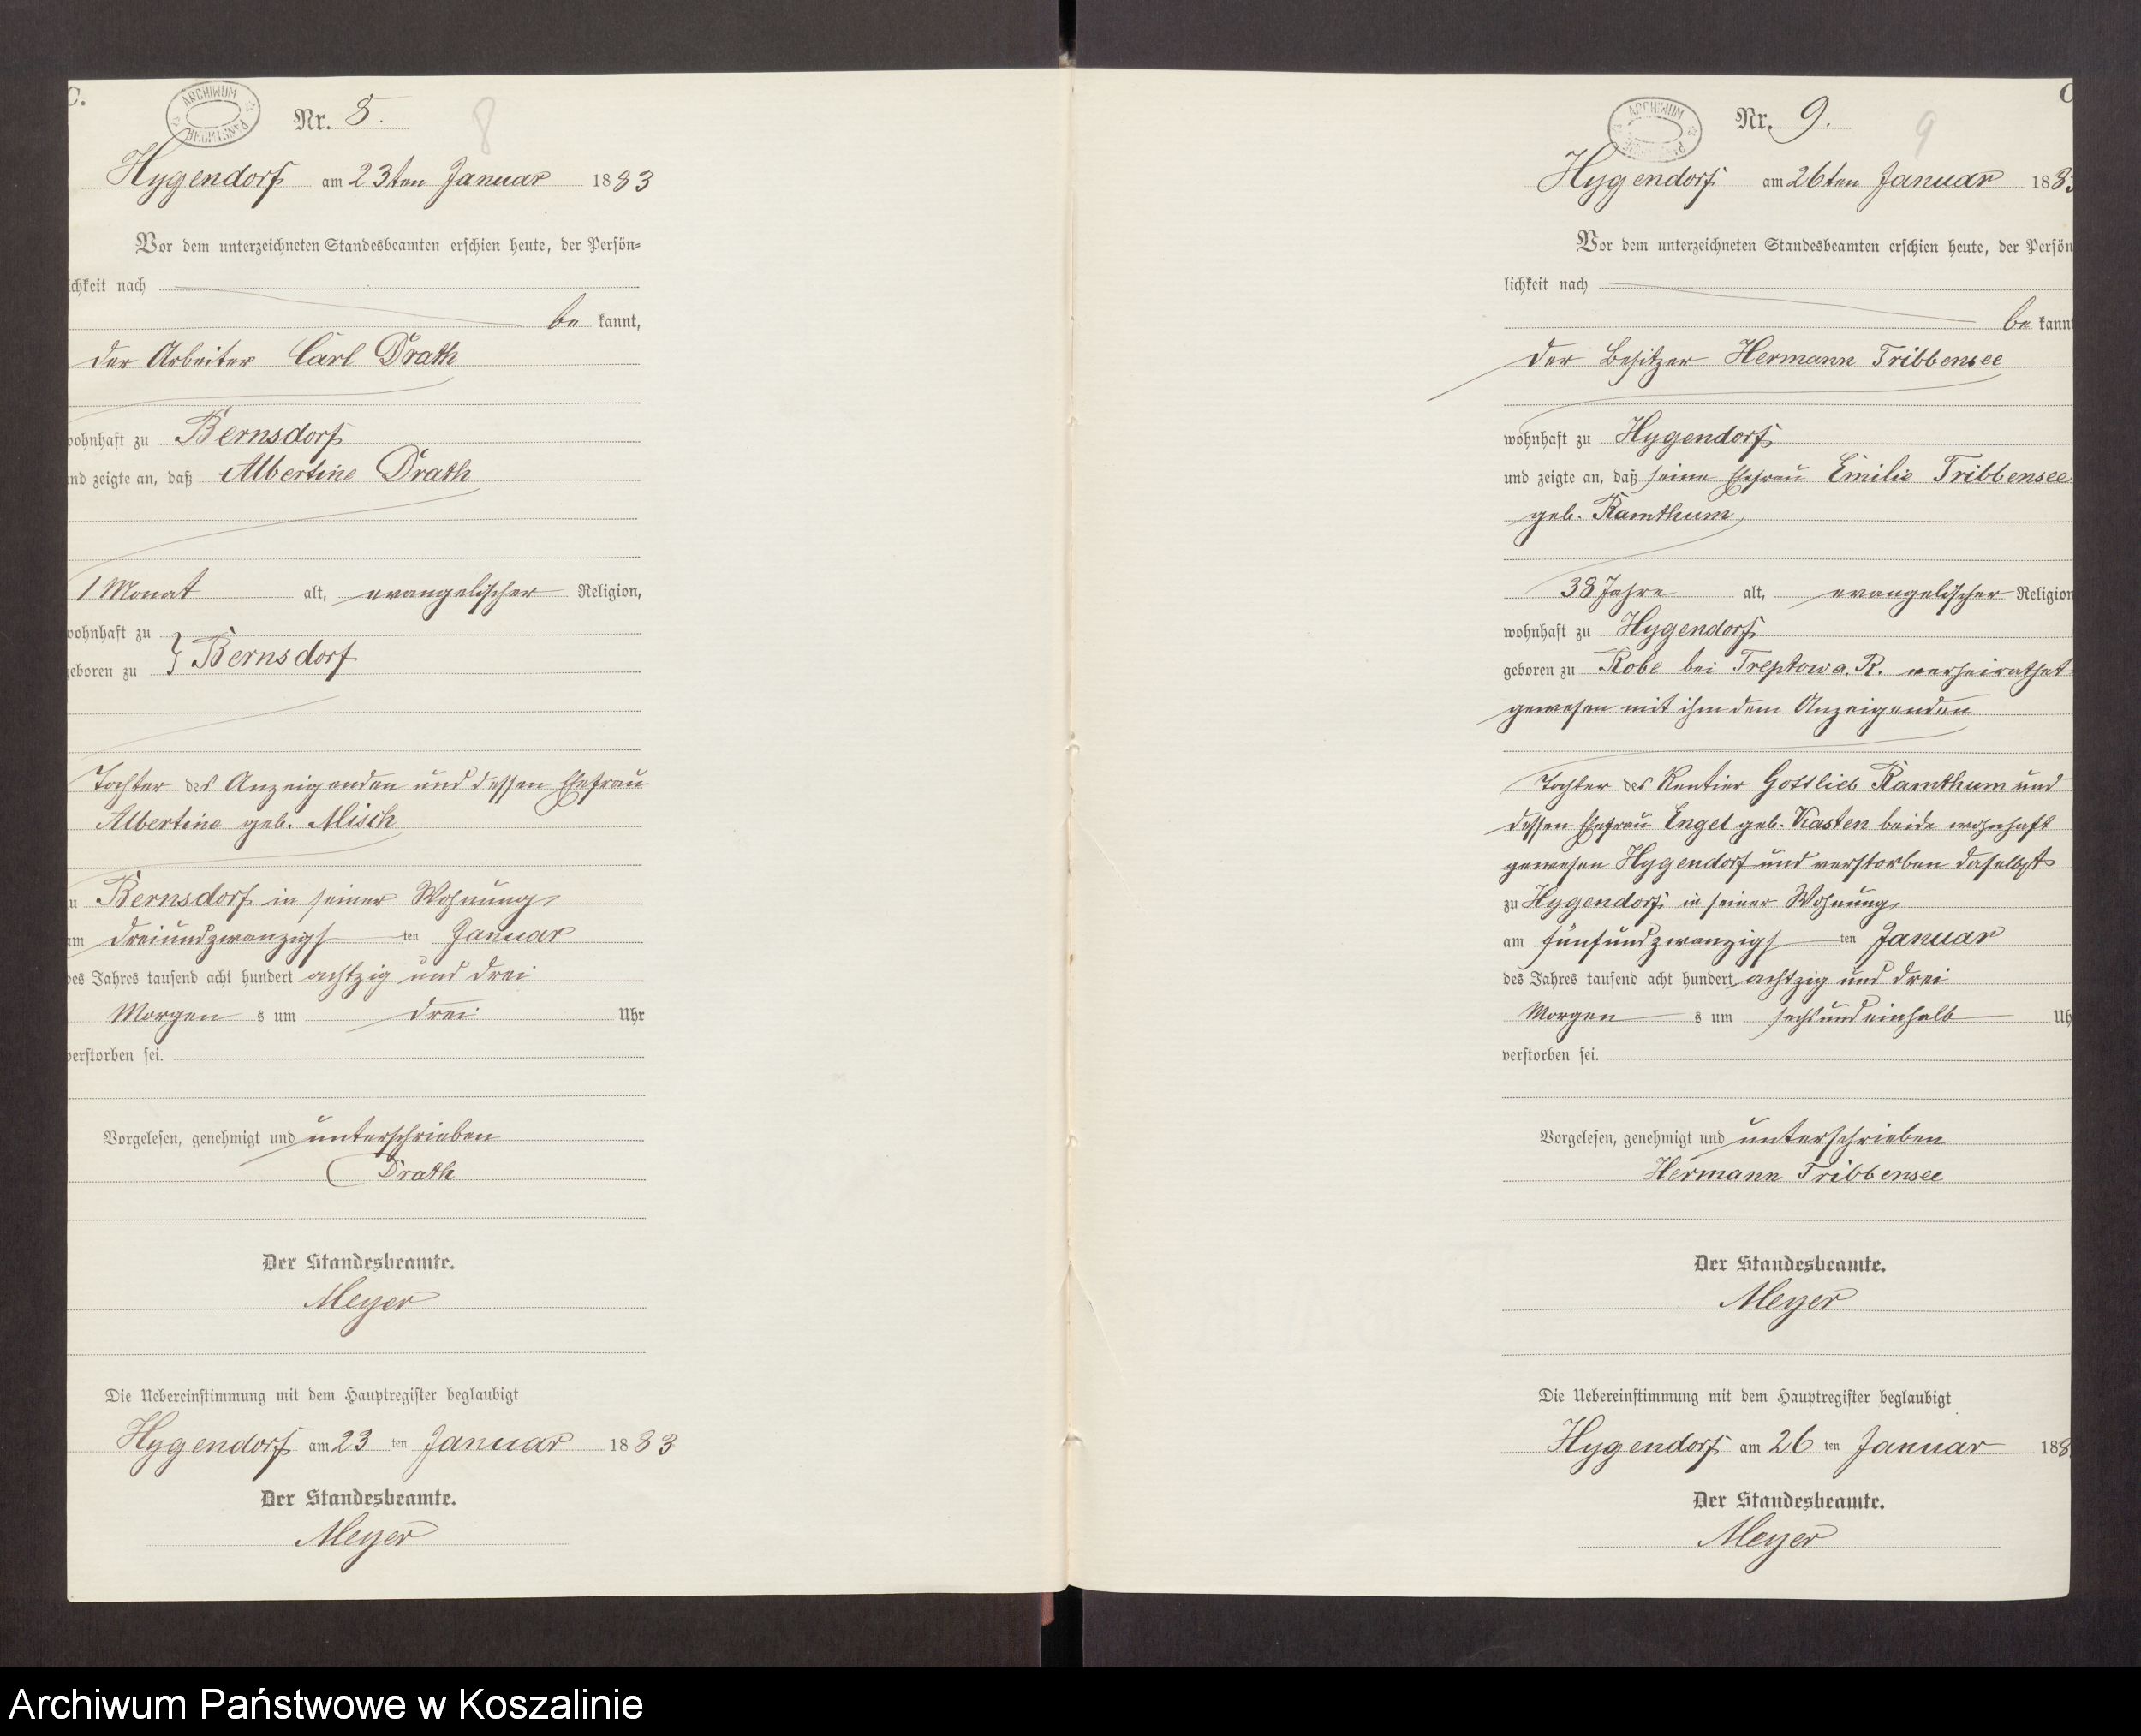 C.
ARCHIWUM
PAŃSTWOWE
Nr. 8.
8
Hygendorf am 23ten Januar 1883
Vor dem unterzeichneten Standesbeamten erschien heute, der Persön-
ichkeit nach
be kannt,
der Arbeiter Carl Drath
wohnhaft zu Bernsdorf
und zeigte an, daß Albertine Drath
1 Monat alt, evangelischer Religion,
wohnhaft zu
geboren zu } Bernsdorf
Tochter des Anzeigenden und dessen Ehefrau
Albertine geb. Misch
zu Bernsdorf in seiner Wohnung
am dreiundzwanzigs ten Januar
des Jahres tausend acht hundert achtzig und drei
Morgen s um drei Uhr
verstorben sei.
Vorgelesen, genehmigt und unterschrieben
Drath
Der Standesbeamte.
Meyer
Die Uebereinstimmung mit dem Hauptregister beglaubigt
Hygendorf am 23 ten Januar 1883
Der Standesbeamte.
Meyer
C
ARCHIWUM
PAŃSTWOWE
Nr. 9.
9
Hygendorf am 26ten Januar 1883
Vor dem unterzeichneten Standesbeamten erschien heute, der Persön
lichkeit nach
be kannt
der Besitzer Hermann Tribbensee
wohnhaft zu Hygendorf
und zeigte an, daß seine Ehefrau Emilie Tribbensee
geb. Ramthum
38 Jahre alt, evangelischer Religion
wohnhaft zu Hygendorf
geboren zu Robe bei Treptow a. R. verheirathet
gewesen mit ihm dem Anzeigenden
Tochter des Rentier Gottlieb Ramthum und
dessen Ehefrau Engel geb. Kasten beide wohnhaft
gewesen Hygendorf und verstorben daselbst
zu Hygendorf in seiner Wohnung
am fünfundzwanzigs ten Januar
des Jahres tausend acht hundert achtzig und drei
Morgen s um sechs und einhalb Uh
verstorben sei.
Vorgelesen, genehmigt und unterschrieben
Hermann Tribbensee
Der Standesbeamte.
Meyer
Die Uebereinstimmung mit dem Hauptregister beglaubigt
Hygendorf am 26 ten Januar 188
Der Standesbeamte.
Meyer
Archiwum Państwowe w Koszalinie